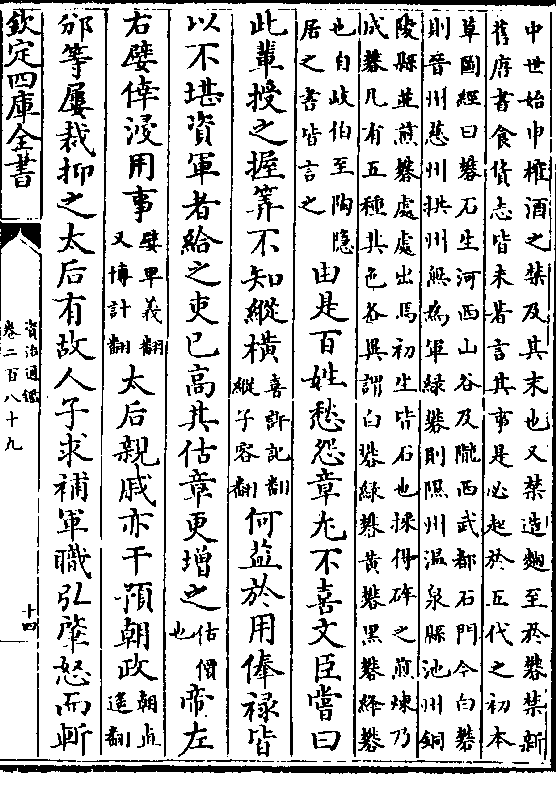 中世始申榷酒之禁及其末也又禁造麯至於礬禁新
舊唐書食貨志皆未著言其事是必起於五代之初本
草圖經曰礬石生河西山谷及隴西武都石門今白礬
則晉州慈州拱州無為軍緑礬則隰州温泉縣池州銅
陵縣並煎礬處處出焉初生皆石也採得碎之煎煉乃
成礬凡有五種其色各異謂白礬緑礬黄礬黒礬絳礬
也自岐伯至陶隱
居之書皆言之
由是百姓愁怨章尤不喜文臣嘗曰
此輩授之握筭不知縱横喜許記翻
縱子容翻何益於用俸禄皆
以不堪資軍者給之吏已高其估章更增之估價
也帝左
右嬖倖浸用事嬖卑義翻
又博計翻太后親戚亦干預朝政朝直
遥翻
邠等屢裁抑之太后有故人子求補軍職弘肇怒而斬
欽定四庫全書
資治通鑑
卷二百八十九
十四